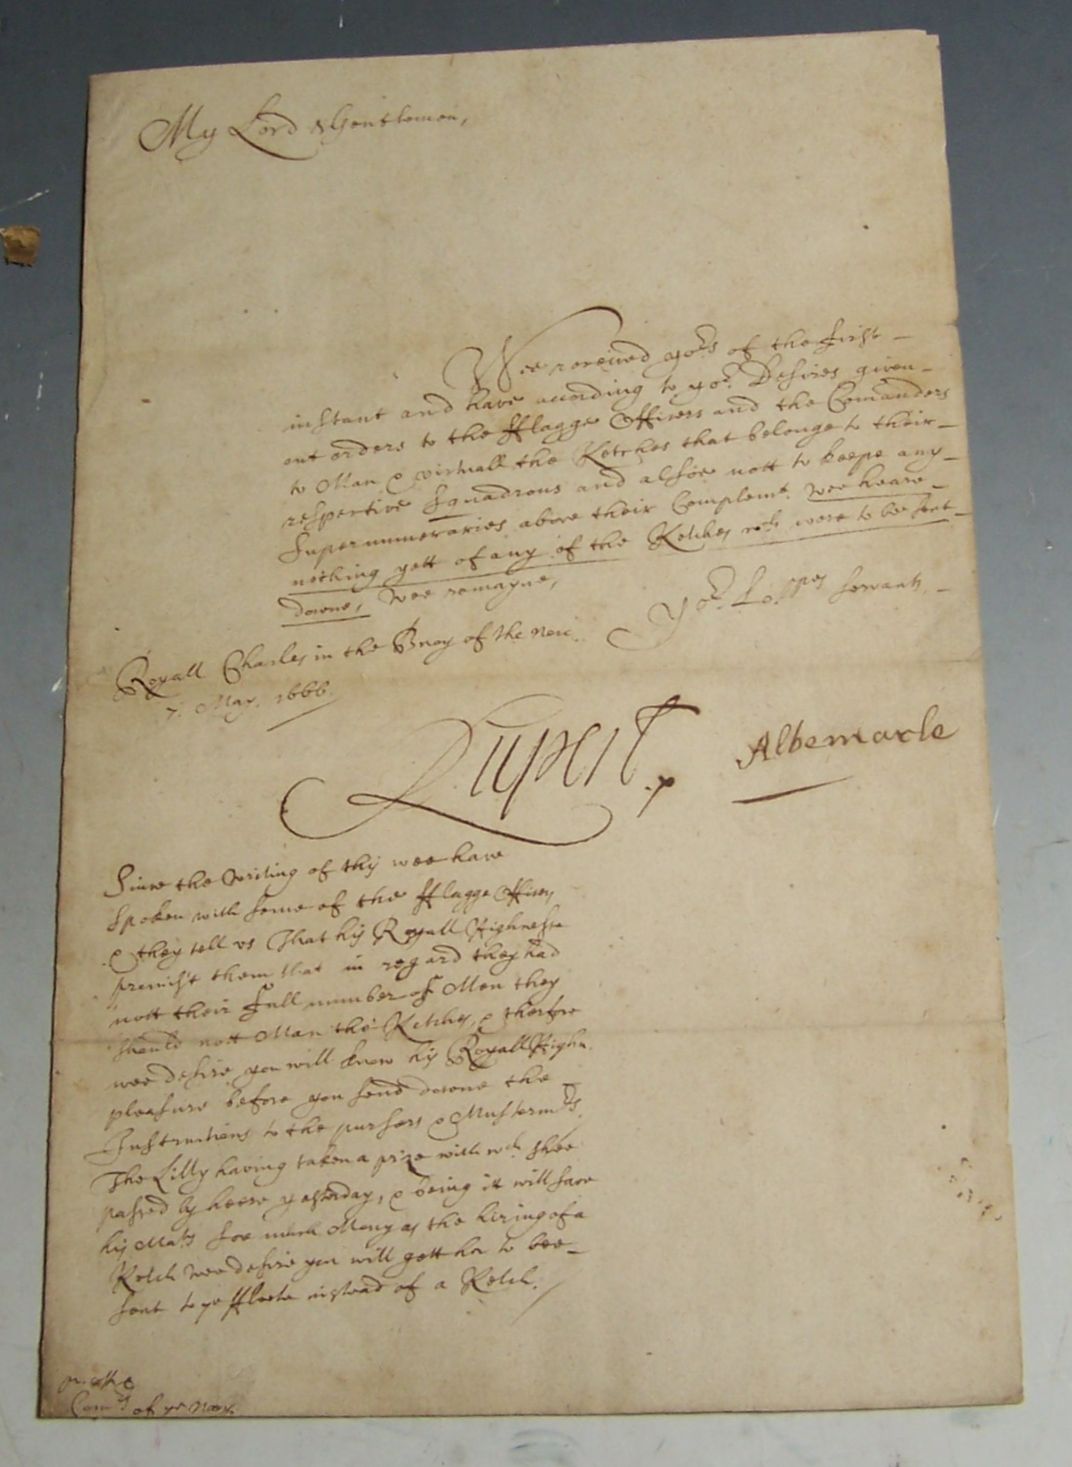 My Lord & Gentlemen,
Wee received yors of the first
instant and have according to yor Desires given
out orders to the fflagge Officers and the Comanders
to Man & victuall the Ketches that belonge to their
respective Squadrons and alsoe nott to keepe any
Supernumeraries above their Complemt. Wee heare
nothing yett of any of the Ketches wch were to bee sent
downe, Wee remayne,
Yor. Lopps servants,
Royall Charles in the Buoy of the Nore
7. May. 1666.
Rupert
Albemarle
Since the writing of this wee have
spoken with some of the fflagge Officers
& they tell us That his Royall Highnesse
promis't them that in regard they had
nott their full number of Men they
should nott Man the Ketches, & therfore
wee desire you will know his Royall Highn.
pleasure before you send downe the
Instructions to the pursers & Musterm:rs.
The Lilly having taken a prize with wch shee
passed by heere yesterday, & being it will save
his Mats soe much Mony as the hiring of a
Ketch Wee desire you will gett her to bee
sent to ye ffleete instead of a Ketch.
of ye Navy.